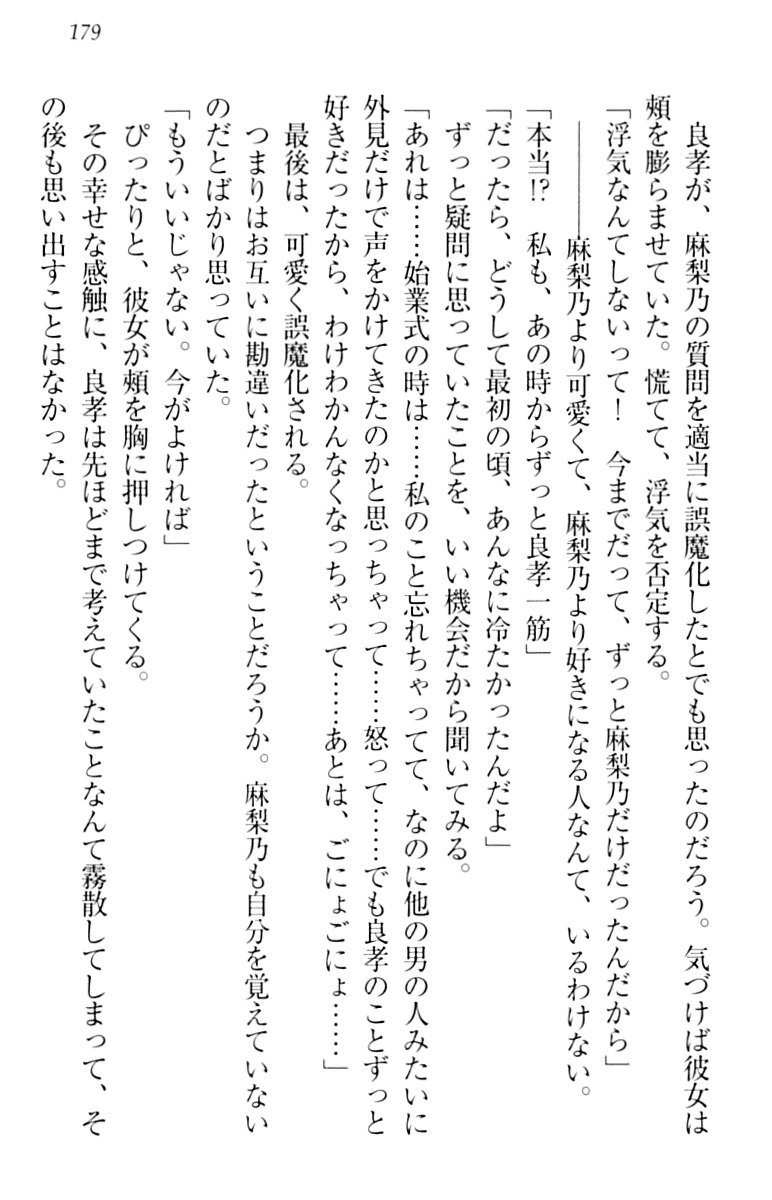 179
良孝が、麻梨乃の質問を適当に誤魔化したとでも思ったのだろう。気づけば彼女は
頬を膨らませていた。慌てて、浮気を否定する。
「浮気なんてしないって！　今までだって、ずっと麻梨乃だけだったんだから」
――麻梨乃より可愛くて、麻梨乃より好きになる人なんて、いるわけない。
「本当!?　私も、あの時からずっと良孝一筋」
「だったら、どうして最初の頃、あんなに冷たかったんだよ」
ずっと疑問に思っていたことを、いい機会だから聞いてみる。
「あれは……始業式の時は……私のこと忘れちゃってて、なのに他の男の人みたいに
外見だけで声をかけてきたのかと思っちゃって……怒って……でも良孝のことずっと
好きだったから、わけわかんなくなっちゃって……あとは、ごにょごにょ……」
最後は、可愛く誤魔化される。
つまりはお互いに勘違いだったということだろうか。麻梨乃も自分を覚えていない
のだとばかり思っていた。
「もういいじゃない。今がよければ」
ぴったりと、彼女が頬を胸に押しつけてくる。
その幸せな感触に、良孝は先ほどまで考えていたことなんて霧散してしまって、そ
の後も思い出すことはなかった。